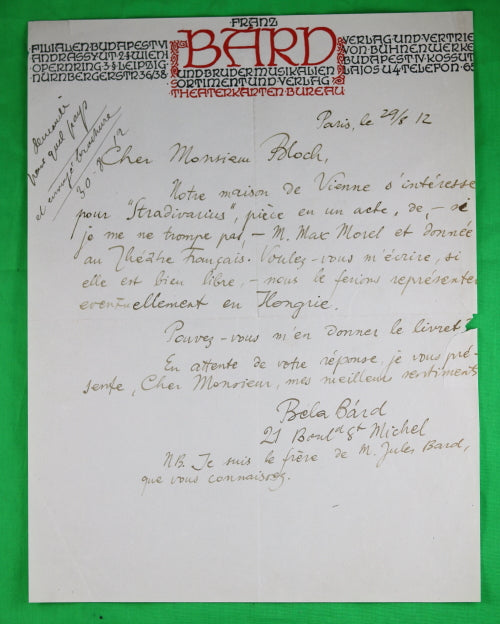 FRANZ
BÁRD
UND BRUDER MUSIKALIEN
SORTIMENT UND VERLAG
THEATERKARTEN BUREAU
FILIALEN: BUDAPEST VI
ANDRASSY UT 2 & WIEN I
OPERNRING 3 & LEIPZIG
NÜRNBERGERSTR 36/38
VERLAG UND VERTRIE
VON BÜHNENWERKE
BUDAPEST IV KOSSUT
LAJOS U 4 TELEFON 65
pour quel pays
et envoyé brochure
30.8.12
Paris, le 29/8 12
Cher Monsieur Bloch,
Notre maison de Vienne s'intéresse
pour "Stradivarius", pièce en un acte, de, – si
je me ne trompe pas, – M. Max Morel et donnée
au Théâtre Français. Voulez-vous m'écrire, si
elle est bien libre, – nous le ferions représenter
eventuellement en Hongrie.
Pouvez-vous m'en donner le livret?
En attente de votre réponse, je vous pré-
sente, Cher Monsieur, mes meilleurs sentiments
Béla Bárd
21 Boul^d St Michel
NB. Je suis le frère de M. Jules Bard,
que vous connaissez.